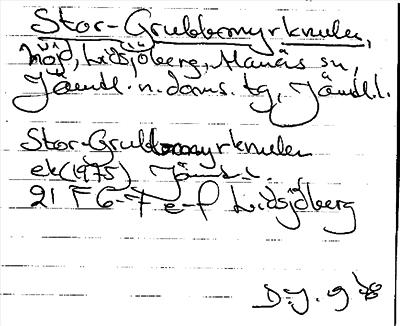 Stor-Grubbmyrknulen,
höjd, Lidsjöberg, Alanäs sn,
Jämtl. n. doms. tg, Jämtl. l.
Stor-Grubbmyrknulen
ek (1975) Jämtl. l.
21 F 6-7 e-f Lidsjöberg